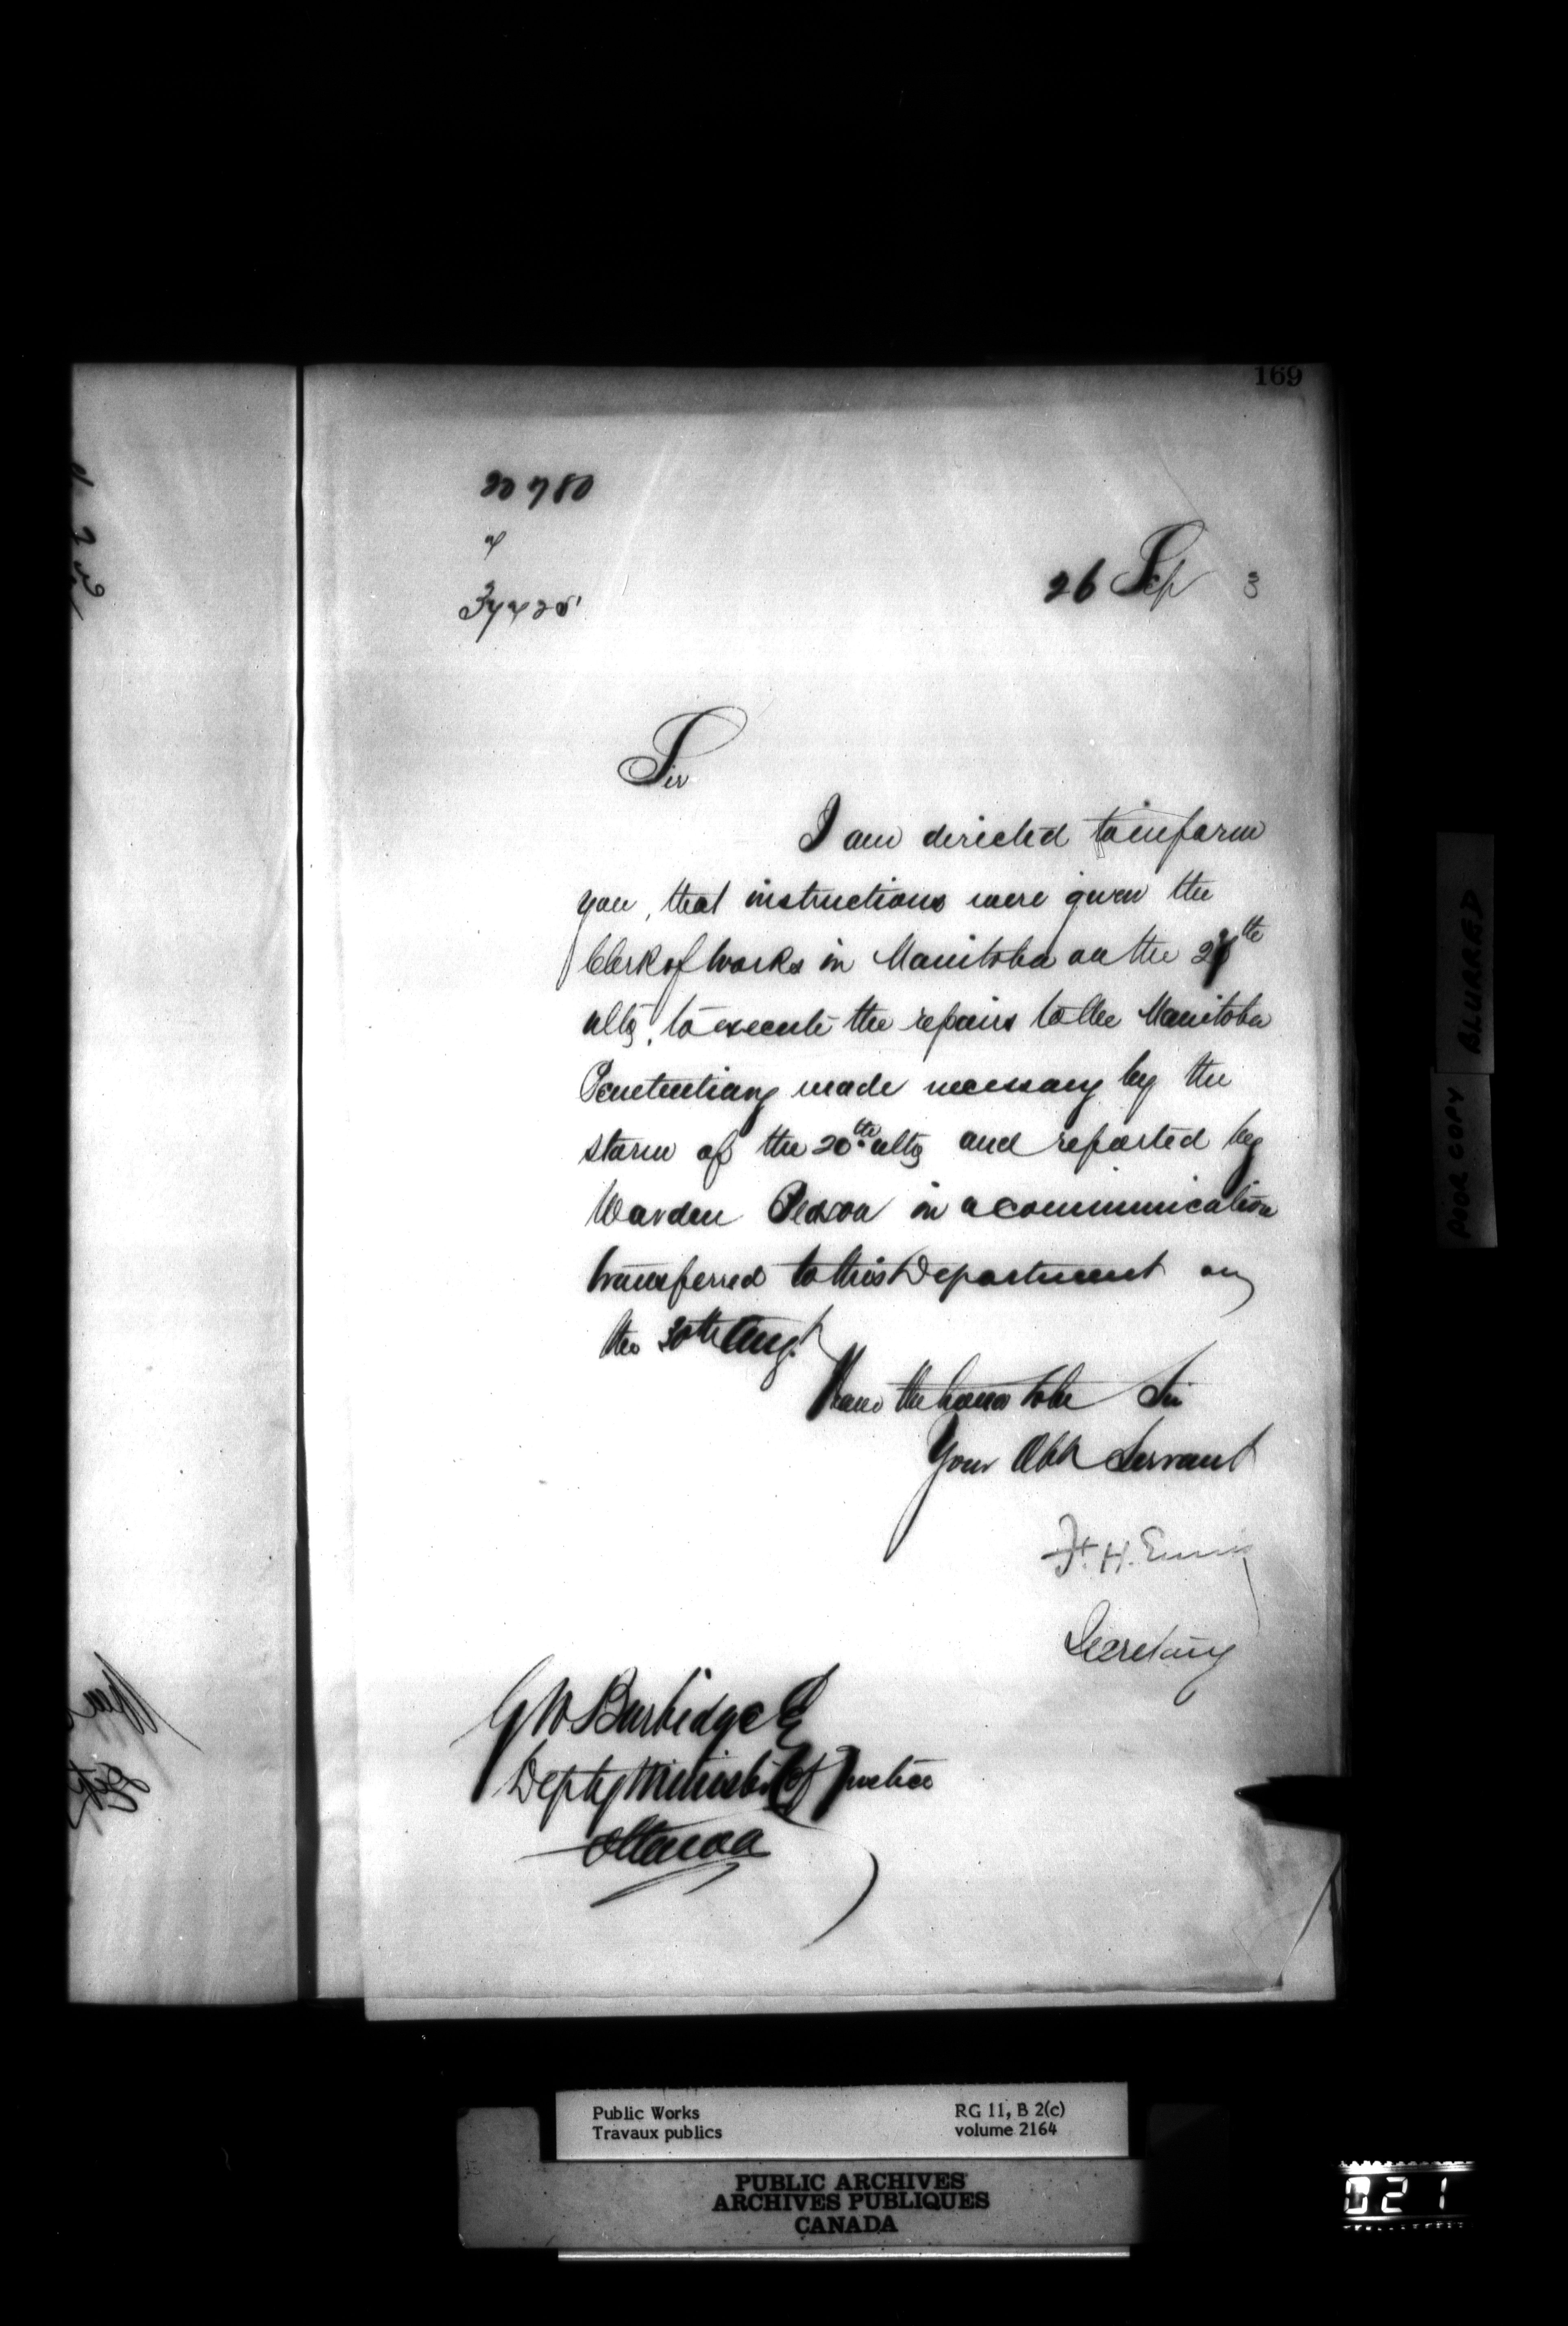 169
20780
26 Sep 3
Sir
I am directed to inform
you, that instructions were given the
Clerk of Works in Manitoba on the
ulto, to execute the repairs to the Manitoba
Penetentiary made necessary by the
storm of the 20th ulto and reported by
Warden Bedson in a communication
transferred to this Department on
the 30th Augt
I have the honor to be Sir
Your Obt Servant
F. H. Ennis
Secretary
G W Burbidge E
Depty Minister of Justice
Ottawa
POOR COPY
BLURRED
Public Works
Travaux publics
RG 11, B 2(c)
volume 2164
PUBLIC ARCHIVES
ARCHIVES PUBLIQUES
CANADA
021